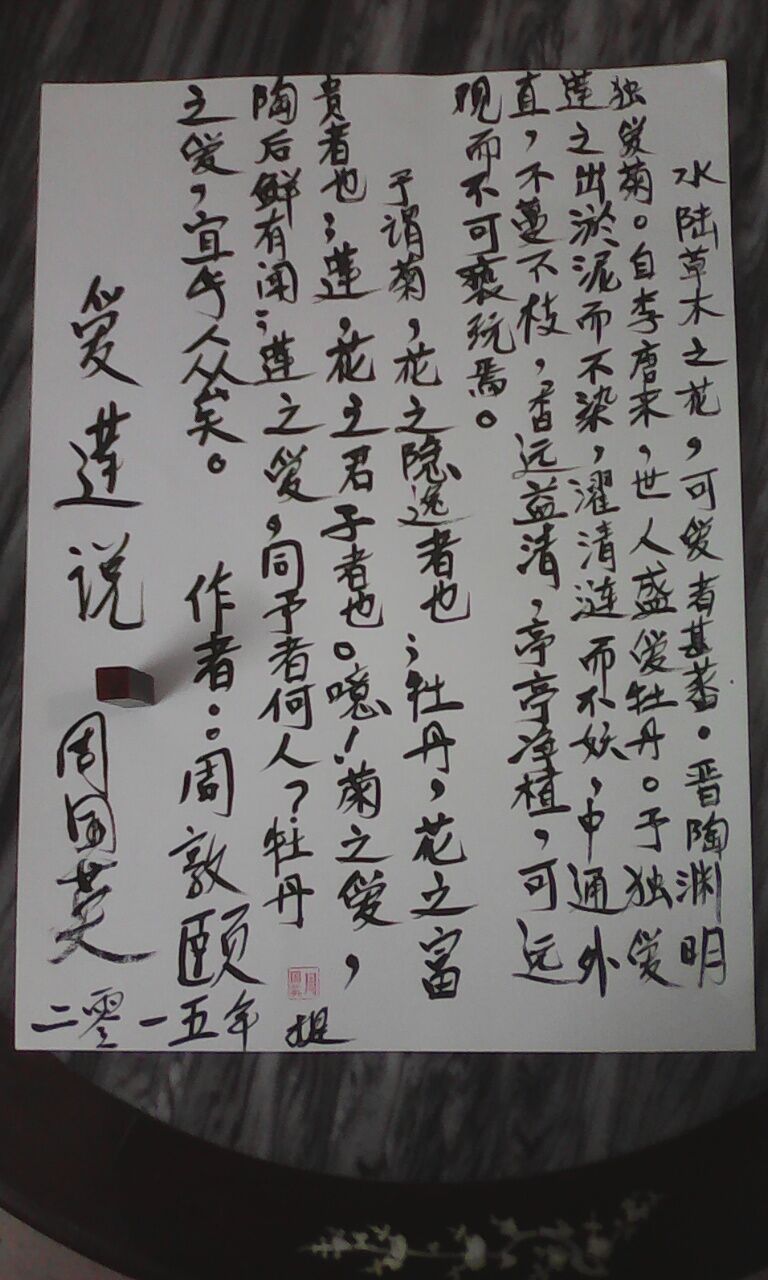 水陆草木之花，可爱者甚蕃。晋陶渊明
独爱菊。自李唐来，世人盛爱牡丹。予独爱
莲之出淤泥而不染，濯清涟而不妖，中通外
直，不蔓不枝，香远益清，亭亭净植，可远
观而不可亵玩焉。
予谓菊，花之隐逸者也；牡丹，花之富
贵者也；莲，花之君子者也。噫！菊之爱，
陶后鲜有闻；莲之爱，同予者何人？牡丹
之爱，宜乎人众矣。
作者：周敦颐
爱莲说
周国英
二零一五年 提